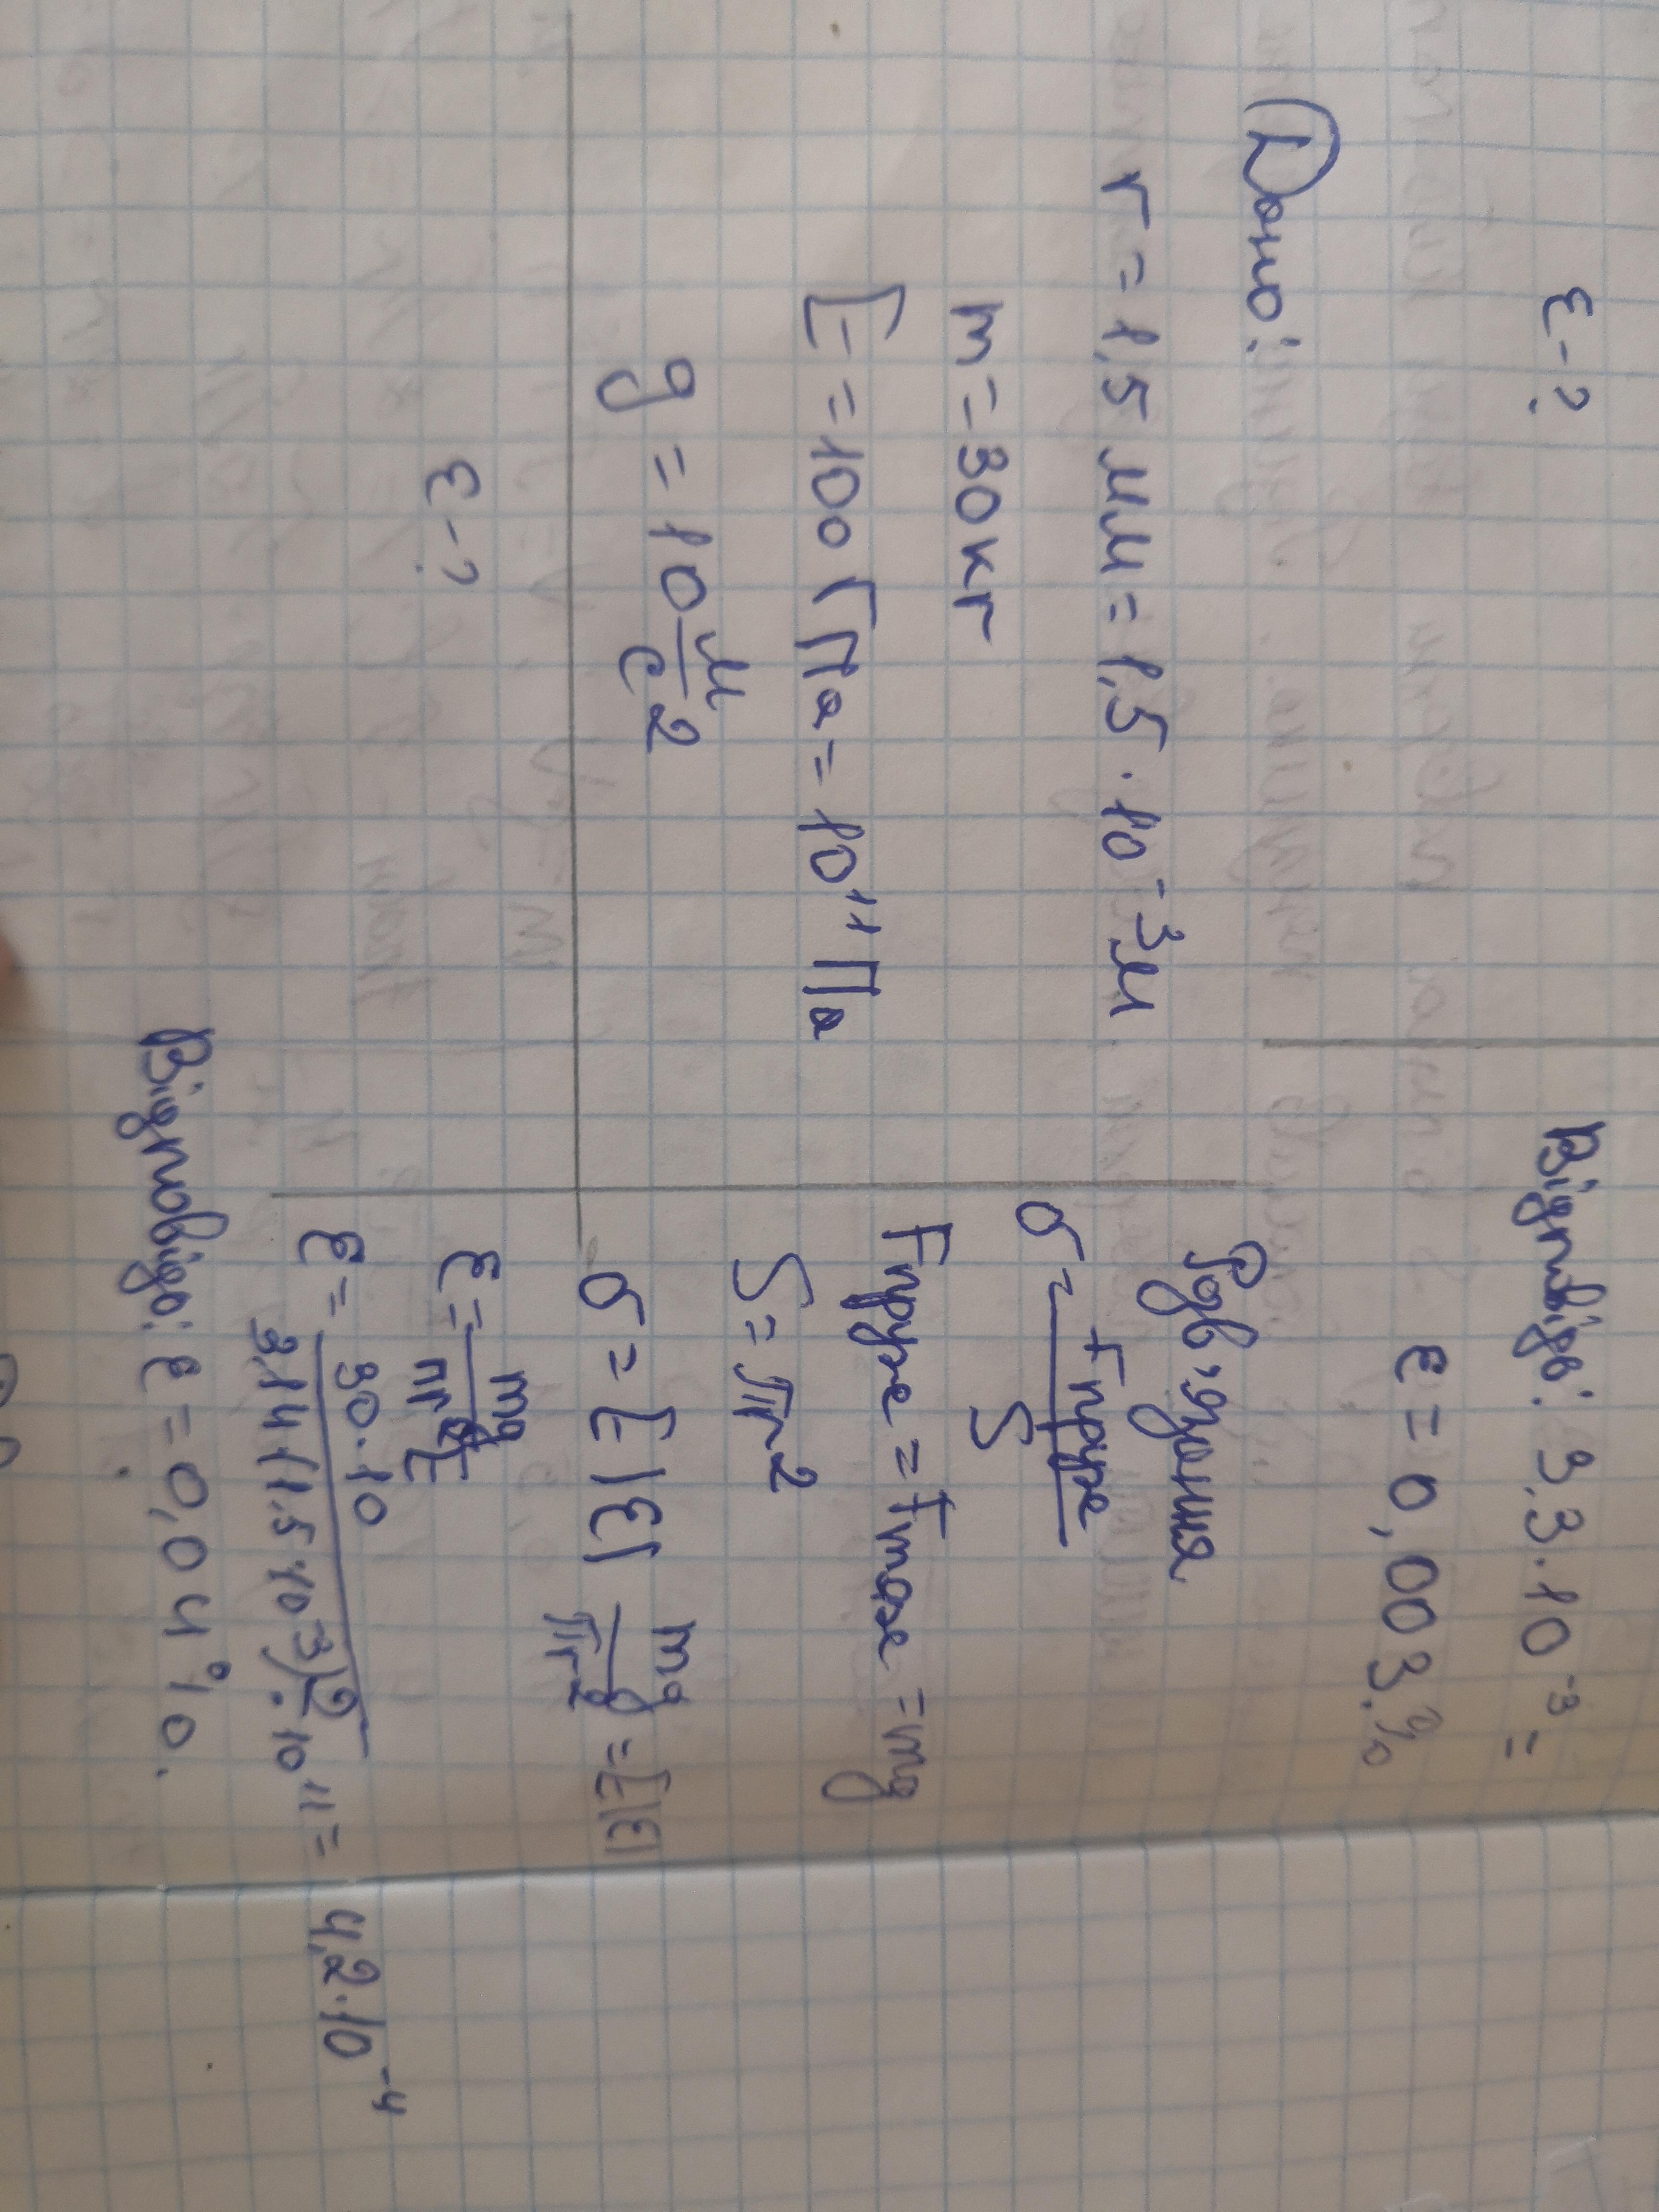 ε-?
Відповідь: 3,3·10⁻³=
ε=0,003%
Дано:
r=1,5мм=1,5·10⁻³м
m=30кг
E=100ГПа=10¹¹Па
g=10 м/с²
ε-?
Розв'язання
σ= Fпруж/S
Fпруж=Fтяж=mg
S=πr²
σ=E|ε| mg/πr²=E|ε|
ε= mg/πr²E
ε= 30·10/3,14·(1,5·10⁻³)²·10¹¹= 4,2·10⁻⁴
Відповідь: ε=0,04%.